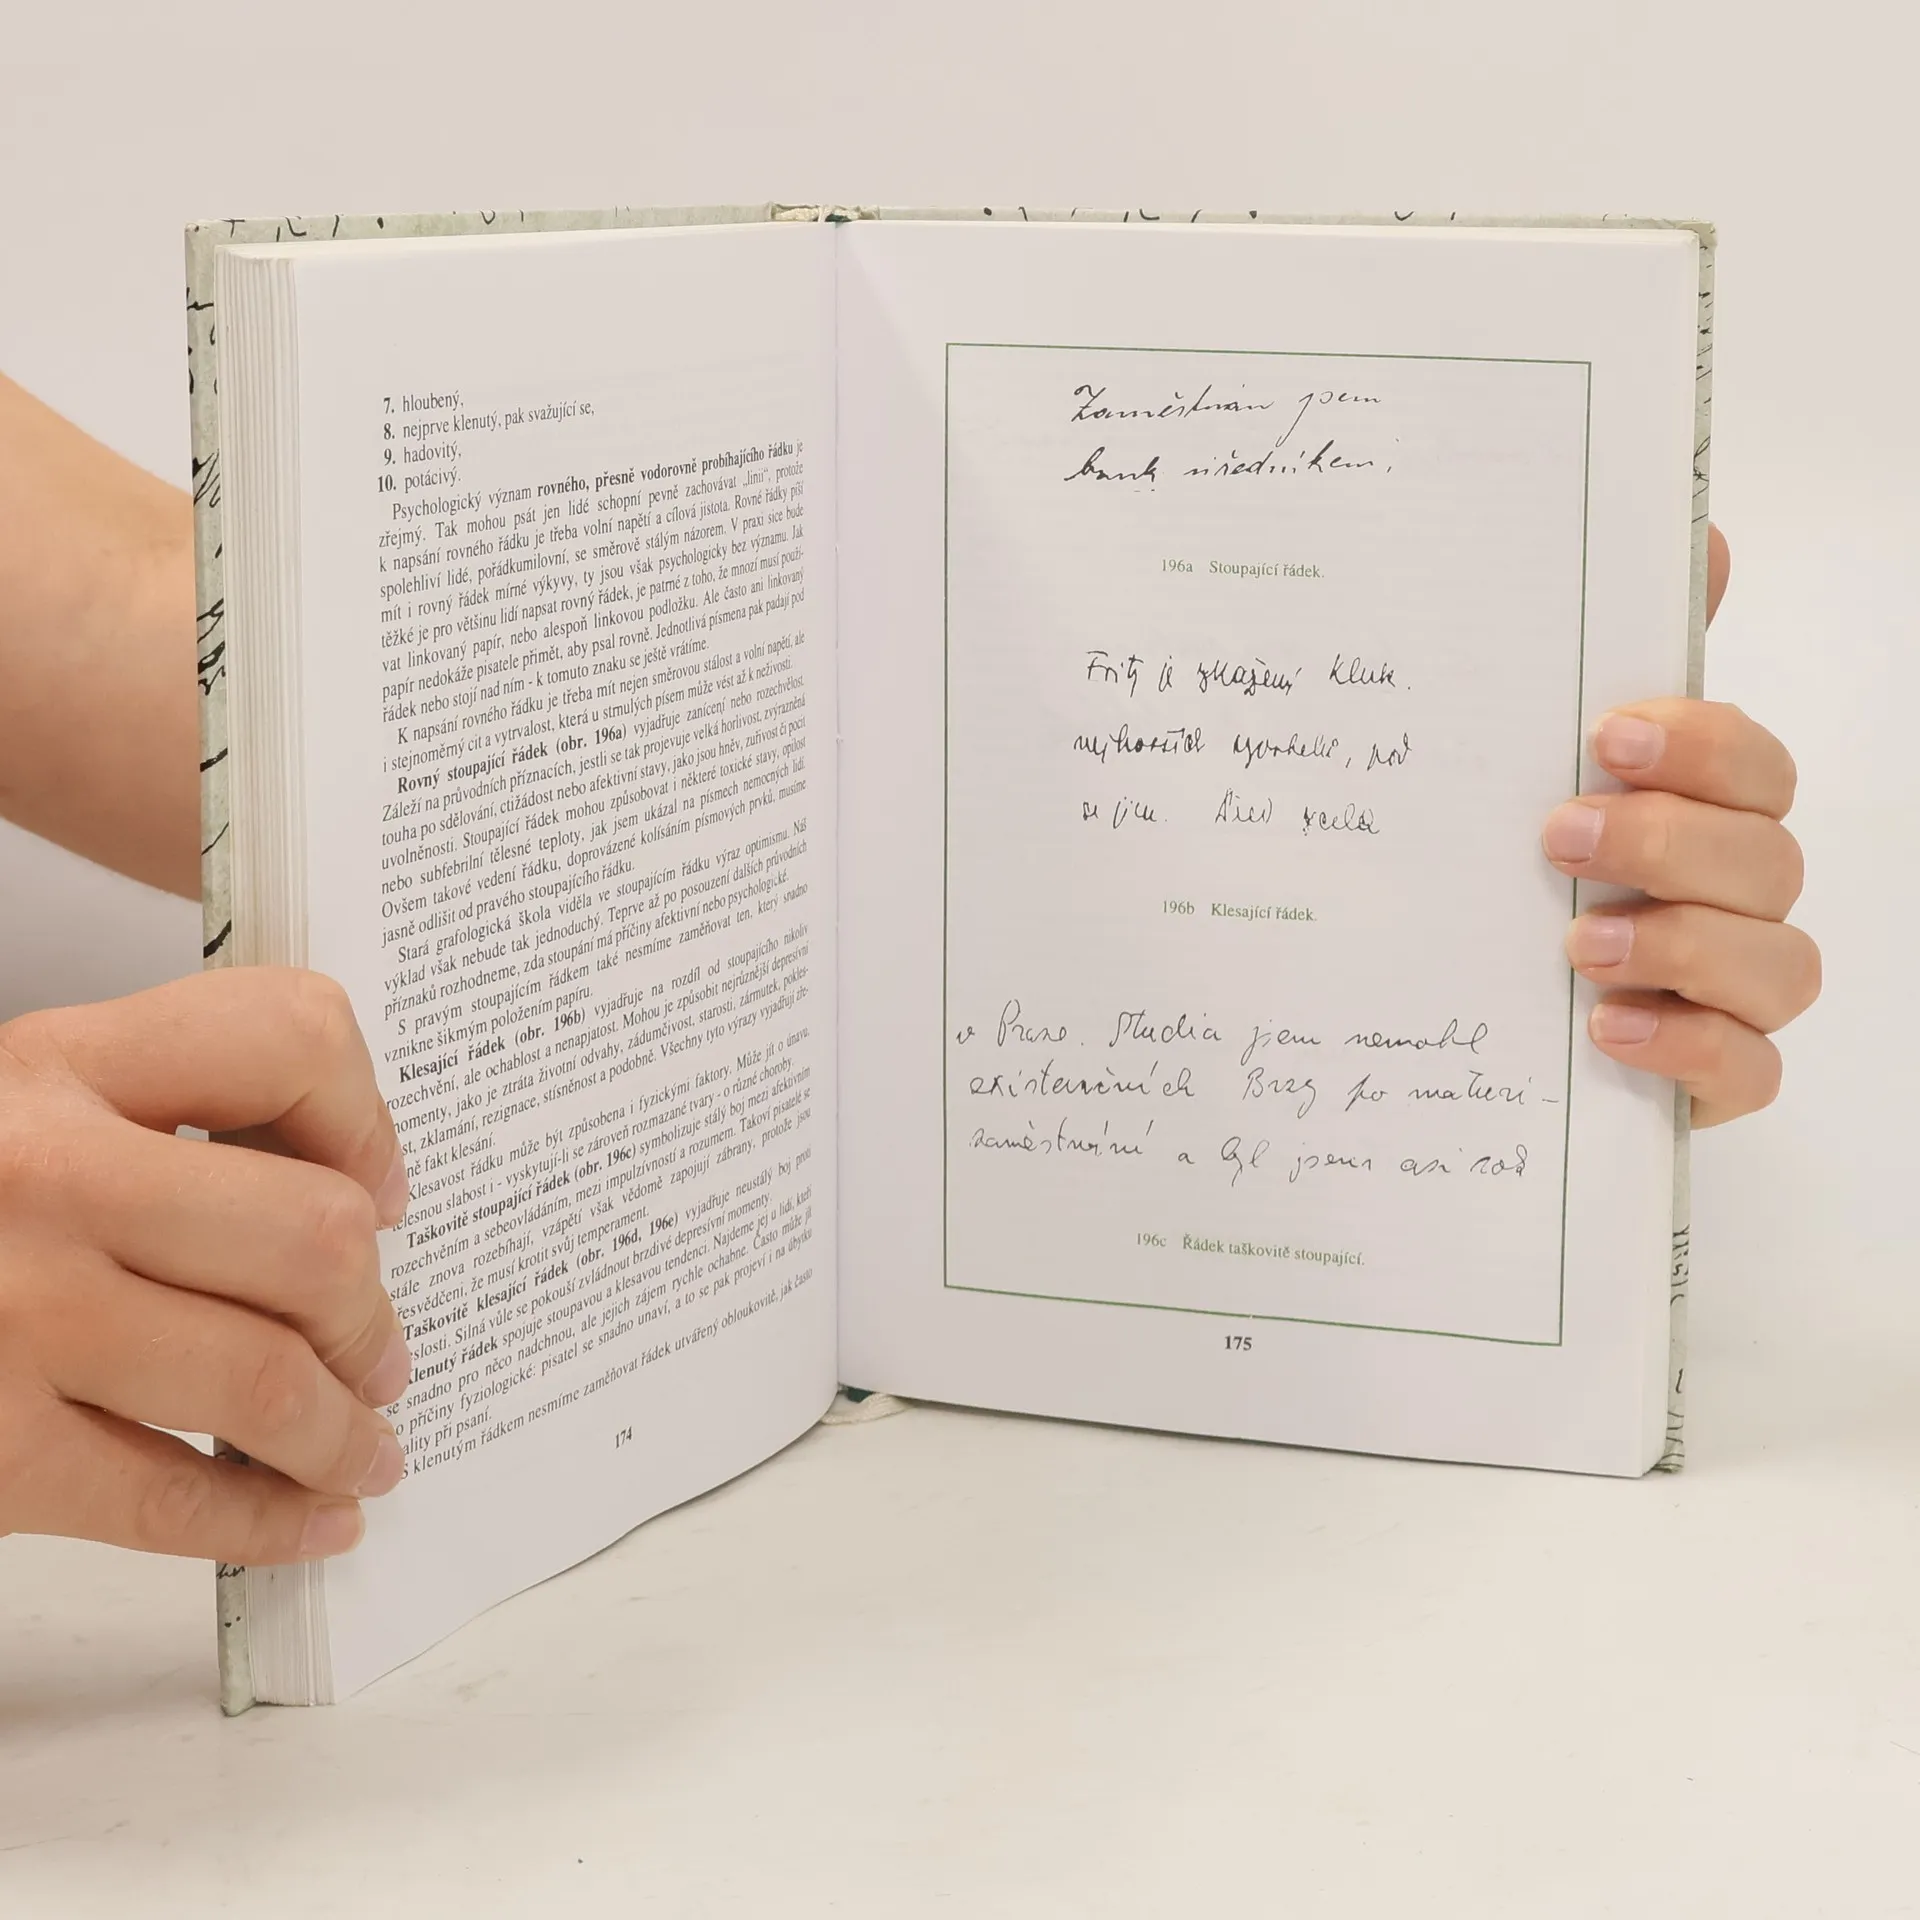 7. hloubený,
8. nejprve klenutý, pak svažující se,
9. hadovitý,
10. potácivý.
Psychologický význam rovného, přesně vodorovně probíhajícího řádku je
zřejmý. Tak mohou psát jen lidé schopní pevně zachovávat „linii“, protože
k napsání rovného řádku je třeba volní napětí a cílová jistota. Rovné řádky píší
spolehliví lidé, pořádkumilovní, se směrově stálým názorem. V praxi sice bude
mít i rovný řádek mírné výkyvy, ty jsou však psychologicky bez významu. Jak
těžké je pro většinu lidí napsat rovný řádek, je patrné z toho, že mnozí musí použí-
vat linkovaný papír, nebo alespoň linkovou podložku. Ale často ani linkovaný
papír nedokáže pisatele přimět, aby psal rovně. Jednotlivá písmena pak padají pod
řádek nebo stojí nad ním - k tomuto znaku se ještě vrátíme.
K napsání rovného řádku je třeba mít nejen směrovou stálost a volní napětí, ale
i stejnoměrný cit a vytrvalost, která u strnulých písem může vést až k neživosti.
Rovný stoupající řádek (obr. 196a) vyjadřuje zanícení nebo rozechvělost.
Záleží na průvodních příznacích, jestli se tak projevuje velká horlivost, zvýrazněná
touha po sdělování, ctižádost nebo afektivní stavy, jako jsou hněv, zuřivost či pocit
uvolněnosti. Stoupající řádek mohou způsobovat i některé toxické stavy, opilost
nebo subfebrilní tělesné teploty, jak jsem ukázal na písmech nemocných lidí.
Ovšem takové vedení řádku, doprovázené kolísáním písmových prvků, musíme
jasně odlišit od pravého stoupajícího řádku.
Stará grafologická škola viděla ve stoupajícím řádku výraz optimismu. Náš
výklad však nebude tak jednoduchý. Teprve až po posouzení dalších průvodních
příznaků rozhodneme, zda stoupání má příčiny afektivní nebo psychologické.
S pravým stoupajícím řádkem také nesmíme zaměňovat ten, který snadno
vznikne šikmým položením papíru.
Klesající řádek (obr. 196b) vyjadřuje na rozdíl od stoupajícího nikoliv
rozechvění, ale ochablost a nenapjatost. Mohou je způsobit nejrůznější depresivní
momenty, jako je ztráta životní odvahy, zádumčivost, starosti, zármutek, pokles-
st, zklamání, rezignace, stísněnost a podobně. Všechny tyto výrazy vyjadřují zře-
ně fakt klesání.
Klesavost řádku může být způsobena i fyzickými faktory. Může jít o únavu,
tělesnou slabost i - vyskytují-li se zároveň rozmazané tvary - o různé choroby.
Taškovitě stoupající řádek (obr. 196c) symbolizuje stálý boj mezi afektivním
rozechvěním a sebeovládáním, mezi impulzívností a rozumem. Takoví pisatelé se
stále znova rozebíhají, vzápětí však vědomě zapojují zábrany, protože jsou
řesvědčeni, že musí krotit svůj temperament.
Taškovitě klesající řádek (obr. 196d, 196e) vyjadřuje neustálý boj proti
slosti. Silná vůle se pokouší zvládnout brzdivé depresívní momenty.
Klenutý řádek spojuje stoupavou a klesavou tendenci. Najdeme jej u lidí, kteří
se snadno pro něco nadchnou, ale jejich zájem rychle ochabne. Často může jít
o příčiny fyziologické: pisatel se snadno unaví, a to se pak projeví i na úbytku
ality při psaní.
S klenutým řádkem nesmíme zaměňovat řádek utvářený obloukovitě, jak často
174
Zaměstnán jsem
bank. úředníkem,
196a Stoupající řádek.
Fritz je zkažený kluk.
nejhorších vyvrhelů, pod
se jen. Šíleč zcela
196b Klesající řádek.
v Praze. Studia jsem nemohl
existenčních Brzy po maturi-
zaměstnání a byl jsem asi rok
196c Řádek taškovitě stoupající.
175